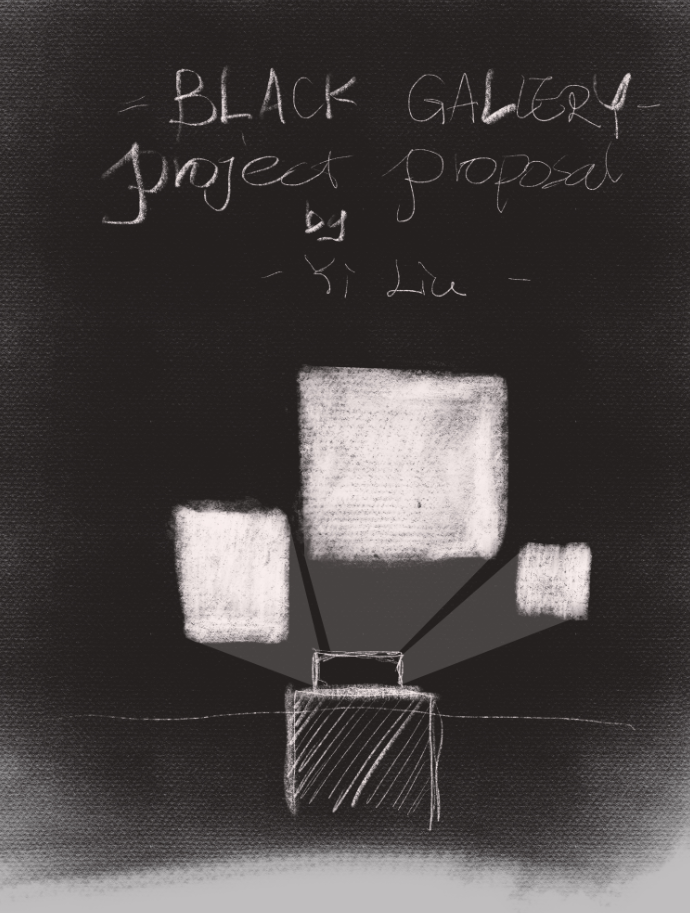 - BLACK GALLERY -
project proposal
by
- Yi Liu -